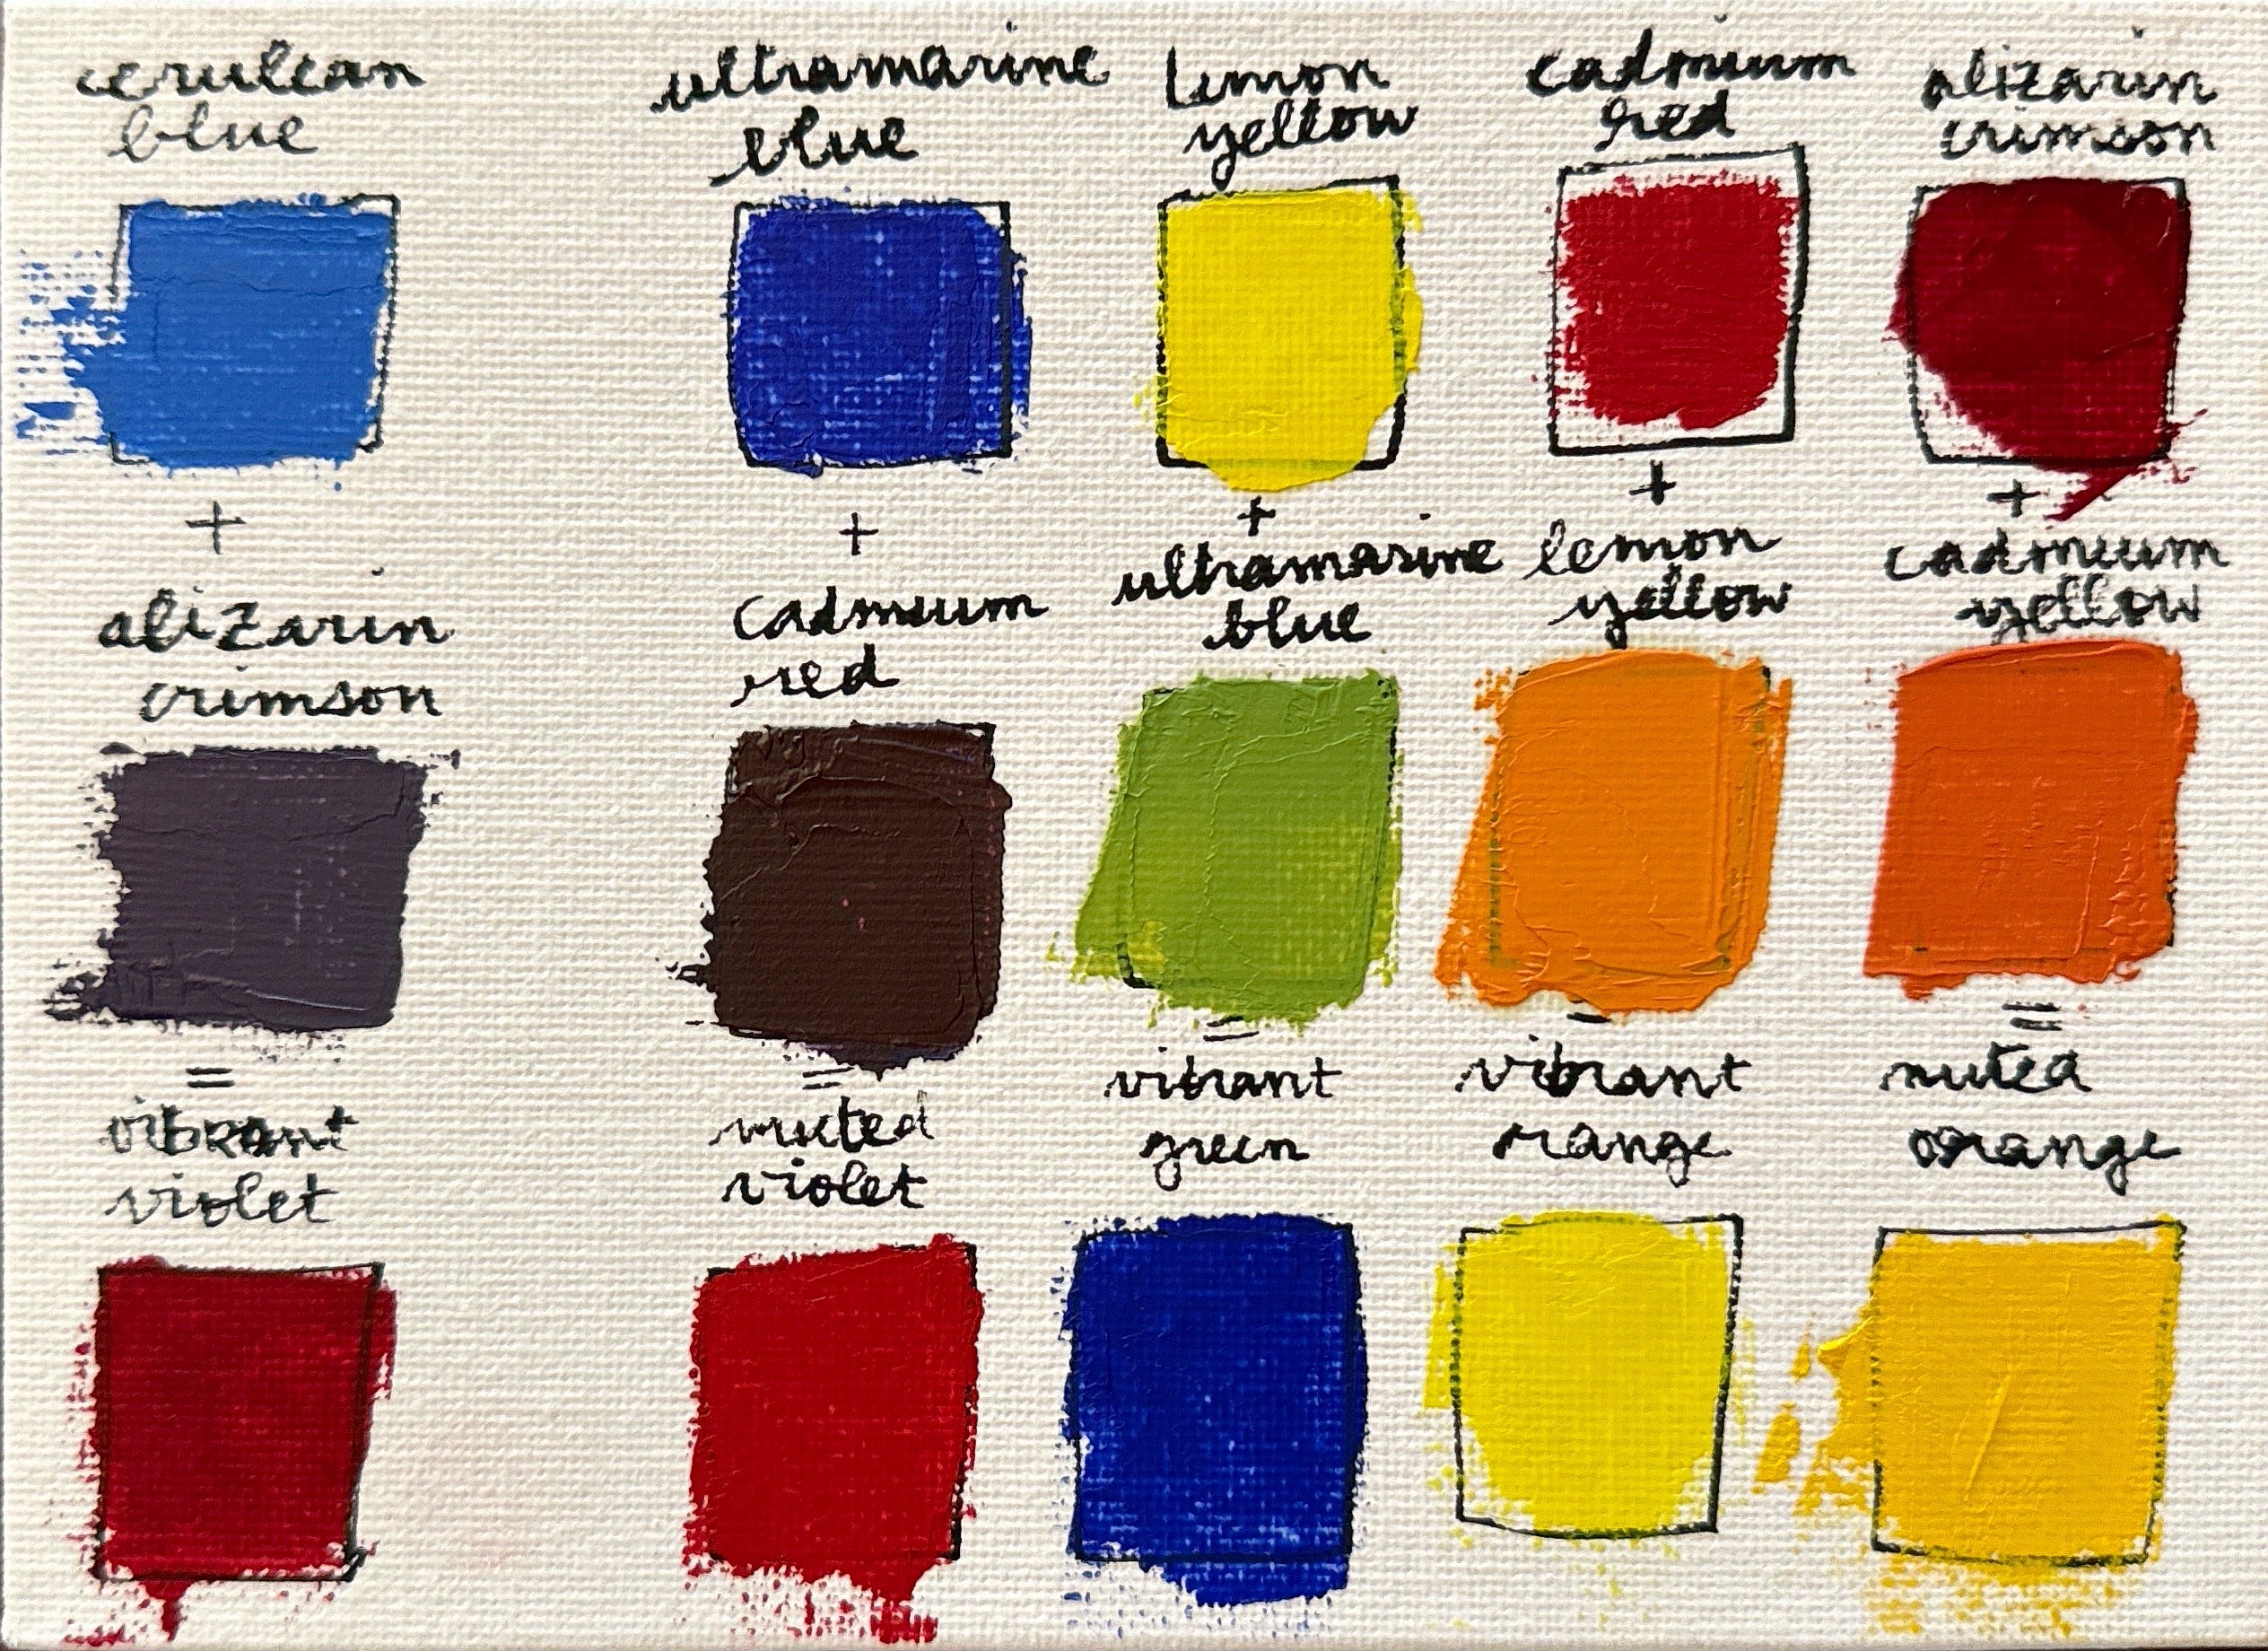 cerulean
blue
+
alizarin
crimson
=
vibrant
violet
ultramarine
blue
+
cadmium
red
=
muted
violet
lemon
yellow
+
ultramarine
blue
=
vibrant
green
cadmium
red
+
lemon
yellow
=
vibrant
orange
alizarin
crimson
+
cadmium
yellow
=
muted
orange